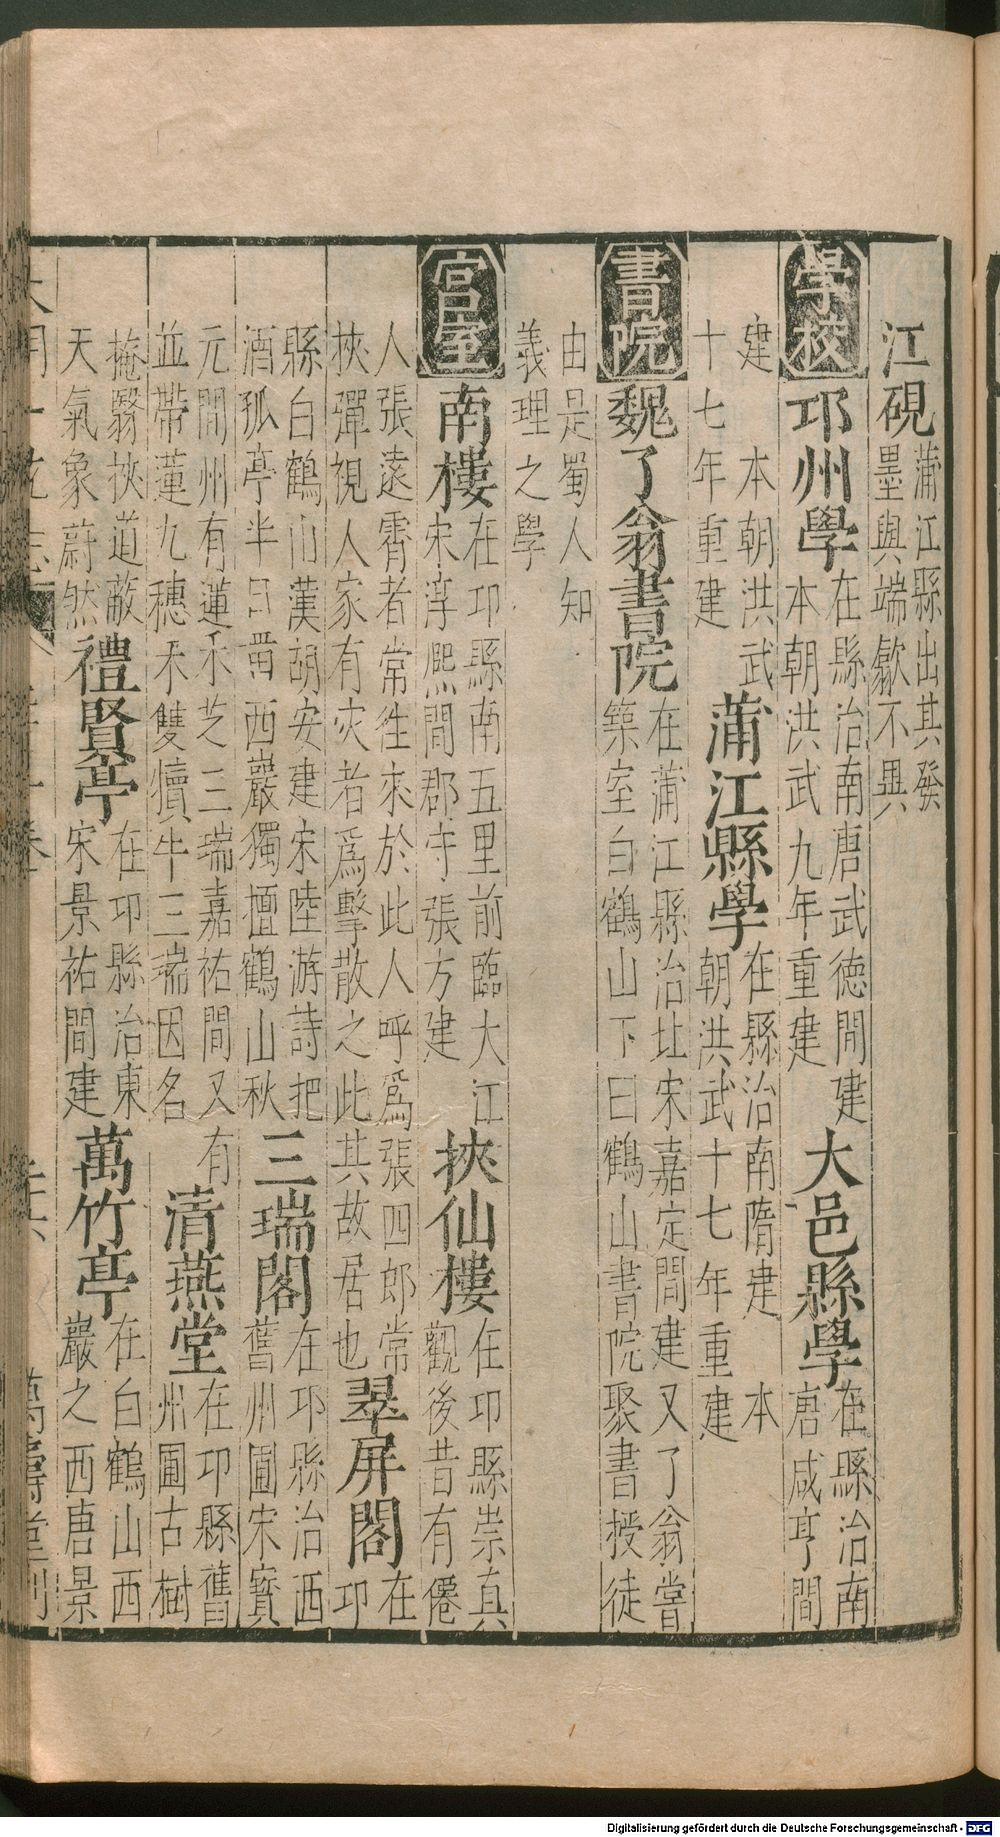 江硯蒲江縣出其發
墨與端歙不異
學校
邛州學在縣治南唐武德間建
本朝洪武九年重建
大邑縣學在縣治南
唐咸亨間
建 本朝洪武
十七年重建
蒲江縣學在縣治南隋建 本
朝洪武十七年重建
書院
魏了翁書院在蒲江縣治北宋嘉定間建又了翁嘗
築室白鶴山下曰鶴山書院聚書授徒
由是蜀人知
義理之學
宮室
南樓在邛縣南五里前臨大江
宋淳熙間郡守張方建
挾仙樓在邛縣崇真
觀後昔有僊
人張遠霄者常徃來於此人呼爲張四郎常
挾彈視人家有灾者爲擊散之此其故居也
翠屏閣在
邛
縣白鶴山漢胡安建宋陸游詩把
酒孤亭半日留西巖獨擅鶴山秋
三瑞閣在邛縣治西
舊州圃宋寶
元間州有蓮禾芝三瑞嘉祐間又有
並蔕蓮九穗禾雙犢牛三瑞因名
清燕堂在邛縣舊
州圃古樹
掩翳挾道敝
天氣象蔚然
禮賢亭在邛縣治東
宋景祐間建
萬竹亭在白鶴山西
巖之西唐景
萬壽堂刊
Digitalisierung gefördert durch die Deutsche Forschungsgemeinschaft - DFG